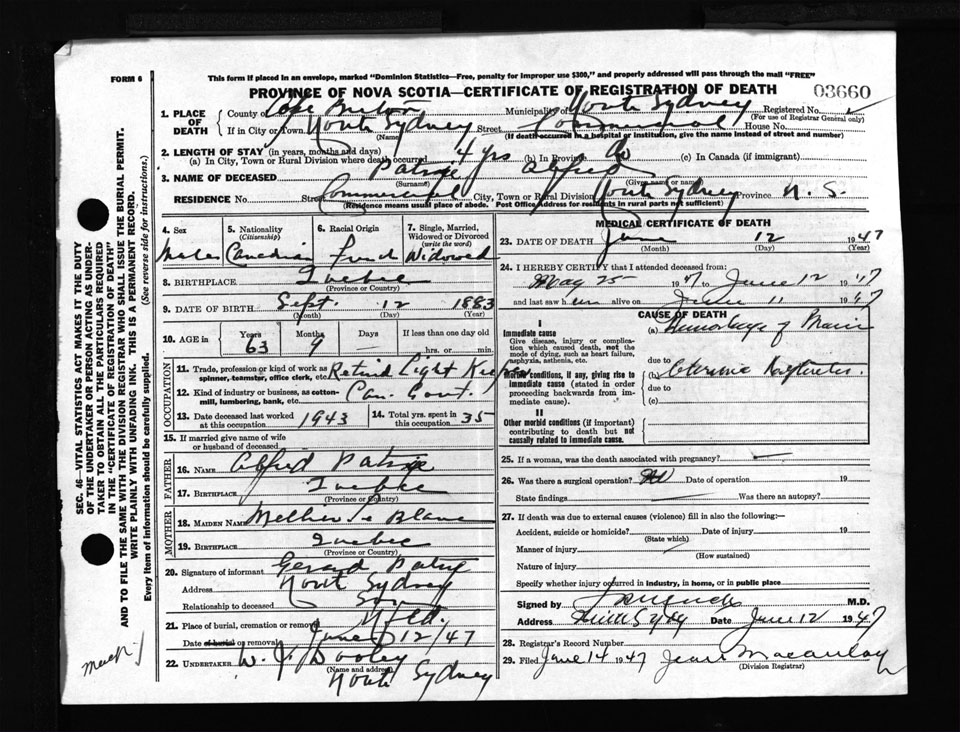 FORM 6
This form if placed in an envelope, marked "Dominion Statistics—Free, penalty for improper use $300," and properly addressed will pass through the mail "FREE"
PROVINCE OF NOVA SCOTIA—CERTIFICATE OF REGISTRATION OF DEATH 03660
1. PLACE OF DEATH County of Cape Breton Municipality of North Sydney Registered No.
(For use of Registrar General only)
If in City or Town North Sydney Street Commercial House No.
(Name) (If death occurred in a hospital or institution, give the name instead of street and number)
2. LENGTH OF STAY (in years, months and days)
(a) In City, Town or Rural Division where death occurred 4 yrs (b) In Province do (c) In Canada (if immigrant)
3. NAME OF DECEASED Alfred
(Surname) (Given name or name)
RESIDENCE No. Street Commercial City, Town or Rural Division North Sydney Province N. S.
(Residence means usual place of abode. Post Office Address for residents in rural parts not sufficient)
4. Sex 5. Nationality (Citizenship) 6. Racial Origin 7. Single, Married, Widowed or Divorced (write the word)
Male Canadian French Widowed
8. BIRTHPLACE Quebec
(Province or Country)
9. DATE OF BIRTH Sept. 12 1883
(Month) (Day) (Year)
10. AGE in Years Months Days If less than one day old
63 9 — hrs. or min.
OCCUPATION
11. Trade, profession or kind of work as spinner, teamster, office clerk, etc. Retired Light Keeper
12. Kind of industry or business, as cotton-mill, lumbering, bank, etc. Can. Govt.
13. Date deceased last worked at this occupation 1943 14. Total yrs. spent in this occupation 35
15. If married give name of wife or husband of deceased
FATHER
16. NAME Alfred
17. BIRTHPLACE Quebec
(Province or Country)
MOTHER
18. MAIDEN NAME Le Blanc
19. BIRTHPLACE Quebec
(Province or Country)
20. Signature of informant Gerard
Address North Sydney
Relationship to deceased Son
21. Place of burial, cremation or removal Nfld.
Date of burial or removal June 12/47
22. UNDERTAKER W. J. Dooley
(Name and address)
North Sydney
MEDICAL CERTIFICATE OF DEATH
23. DATE OF DEATH June 12 1947
(Month) (Day) (Year)
24. I HEREBY CERTIFY that I attended deceased from:
May 25 1947 to June 12 1947
and last saw him alive on June 11 1947
CAUSE OF DEATH
I
Immediate cause
Give disease, injury or complication which caused death, not the mode of dying, such as heart failure, asphyxia, asthenia, etc.
(a) Hemorrhage of Brain
due to
Morbid conditions, if any, giving rise to immediate cause (stated in order proceeding backwards from immediate cause).
(b) Chronic
due to
(c)
II
Other morbid conditions (if important) contributing to death but not causally related to immediate cause.
25. If a woman, was the death associated with pregnancy? —
26. Was there a surgical operation? No Date of operation 19
State findings Was there an autopsy?
27. If death was due to external causes (violence) fill in also the following:—
Accident, suicide or homicide? Date of injury 19
(State which)
Manner of injury
(How sustained)
Nature of injury
Specify whether injury occurred in industry, in home, or in public place
Signed by M.D.
Address Date June 12 1947
28. Registrar's Record Number
29. Filed June 14 1947 Macaulay
(Division Registrar)
SEC. 46—VITAL STATISTICS ACT MAKES IT THE DUTY
OF THE UNDERTAKER OR PERSON ACTING AS UNDER-
TAKER TO OBTAIN ALL THE PARTICULARS REQUIRED
IN THE "CERTIFICATE OF REGISTRATION OF DEATH"
AND TO FILE THE SAME WITH THE DIVISION REGISTRAR WHO SHALL ISSUE THE BURIAL PERMIT.
WRITE PLAINLY WITH UNFADING INK. THIS IS A PERMANENT RECORD.
Every item of information should be carefully supplied. (See reverse side for instructions.)